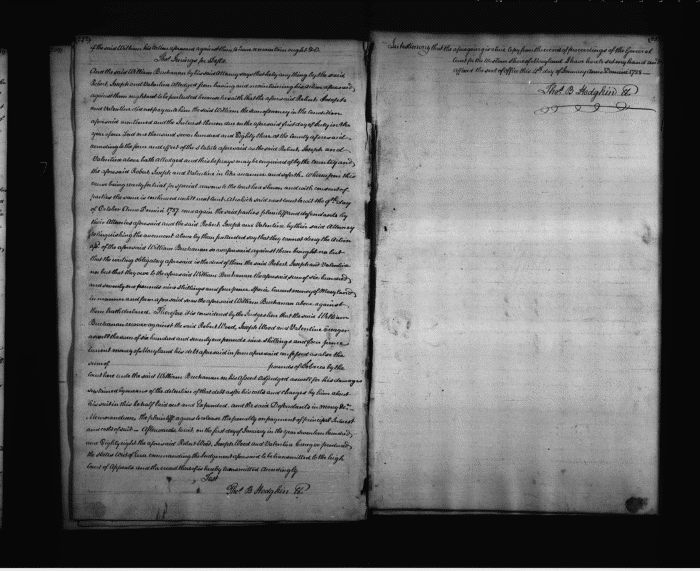 if the said William his Action aforesaid against them to have or maintain ought &c.
Tho.s Jenings for Deft.s
And the said William Buchanan by his said Attorney says that he by any thing by the said
Robert Joseph and Valentine Alledged from having and maintaining his Action aforesaid
against them ought not to be precluded because he saith that the aforesaid Robert Joseph &
and Valentine did not pay unto him the said William the sum of money in the Condition
aforesaid mentioned and the Interest thereon due on the aforesaid first day of July in the
year afore said one thousand seven hundred and Eighty three at the County aforesaid
according to the form and effect of the said Article aforesaid as the said Robert Joseph and
Valentine above hath Alledged and this he prays may be enquired of by the Country and
the aforesaid Robert Joseph and Valentine in like manner and so forth. Whereupon this
cause being ready for trial for special reasons to the court here shewn and with consent of
parties the same is continued until next court. At which said next court to wit the 9th day
of October Anno Domini 1787 came again the said parties plaintiff and defendants by
their Attornies aforesaid and the said Robert Joseph and Valentine by their said Attorney
relinquishing the averment above by them pretended say that they cannot deny the Action
of the aforesaid William Buchanan as aforesaid against them brought nor but
that the writing obligatory aforesaid is the deed of them the said Robert Joseph and Valentine
nor but that they owe to the aforesaid William Buchanan the aforesaid sum of six hundred
and seventy one pounds six shillings and four pence Current money of Maryland
in manner and form aforesaid as the aforesaid William Buchanan above against
them hath declared. Therefore it is considered by the Judges here that the said William
Buchanan recover against the said Robert Wood, Joseph Wood and Valentine Creager
as well the sum of six hundred and seventy one pounds six shillings and four pence
current money of Maryland his debt aforesaid in form aforesaid confessed as also the
sum of pounds of Tobacco by the
Court here unto the said William Buchanan on his Assent Adjudged as well for his damages
sustained by reason of the detention of that debt as for his costs and charges by him about
his suit in this behalf laid out and Expended and the said Defendants in mercy &c.
Memorandum the plaintiff agrees to release the penalty on payment of principal Interest
and costs of suit. Afterwards to wit on the first day of January in the year seventeen hundred
and Eighty eight the aforesaid Robert Wood, Joseph Wood and Valentine Creager produced
the states writ of Error commanding the Judgement aforesaid to be transmitted to the high
Court of Appeals and the record thereof is hereby transmitted accordingly
Test
Tho.s B Hodgkin Cl.
In testimony that the aforegoing is a true copy from the record of proceedings of the General
Court for the Western Shore of Maryland I have hereto set my hand and
affixed the seal of Office this day of January Anno Domini 1788
Tho.s B. Hodgkin Cl.